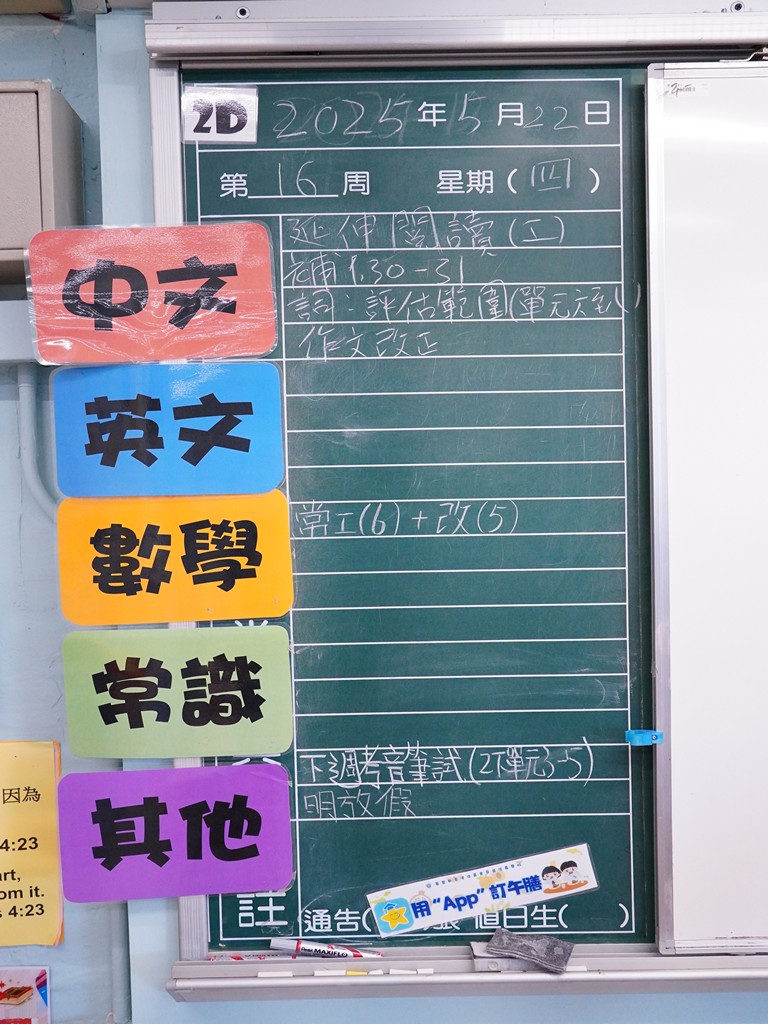 2D 2025年5月22日
第16周 星期(四)
中文
延伸閱讀(工)
補1.30-31
詞:評估範圍(單元六至八)
作文改正
英文
數學
常工(6)+改(5)
常識
其他
下週考音筆試(2下單元3-5)
明放假
註
通告(
用“App”訂午膳
值日生( )
MAXIFLO
因為
4:23
art,
om it.
s 4:23